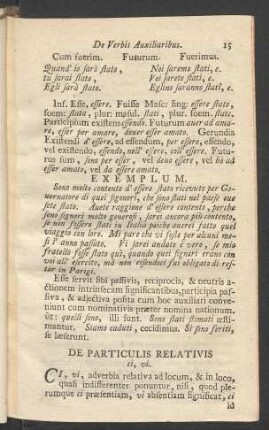 De Verbis Auxiliaribus. 15
Cum fuerim. Futurum. Fuerimus.
Quand' io sarò stato, Noi saremo stati, e.
tù sarai stato, Voi sarete stati, e.
Egli sarà stato. Eglino saranno stati, e.
Inf. Esse, essere. Fuisse Masc: sing: essere stato,
foem: stata, plur: mascul. stati, plur. foem. state.
Participium existens essendo. Futurum aver ad amare,
esser per amare, dover esser amato. Gerundia
Existendi d'essere, ad essendum, per essere, essendo,
vel existendo, essendo, nell' essere, coll' essere. Futurus
sum, sono per esser, vel devo essere, vel hò ad
esser amato, vel da essere amato.
EXEMPLUM.
Sono molto contento d' essere stato ricevuto per Governatore
di quei signori, che sono stati nel paese esseste
stato. Avete raggione d' essere contento, perche
sono signori molto generosi, sarei ancora più contento,
se non fossero stati in Italia poiche averei fatto quel
viaggio con loro. Mi pare che vi foste per alcuni mesi
l' anno passato. Vi sarei andato è vero, se mio
fratello fosse stato quì, quando quei signori erano con
voi all' esercito, mà non essendoci fui obligato di restar
in Parigi.
Esse servit sibi passivis, reciprocis, & neutris actionem
intrinsecam significantibus, participia passiva,
& adjectiva posita cum hoc auxiliari conveniunt
cum nominativis præter nomina nationum,
ut: quelli sono, illi sunt. Sono stati stimati æstimantur.
Siamo caduti, cecidimus. Si sono feriti,
se læserunt.
DE PARTICULIS RELATIVIS
ci, vi.
CI, vi, adverbia relativa ad locum, & in loco,
quasi indifferenter ponuntur, nisi, quod plerumque
ci præsentiam, vi absentiam significat, ci
id